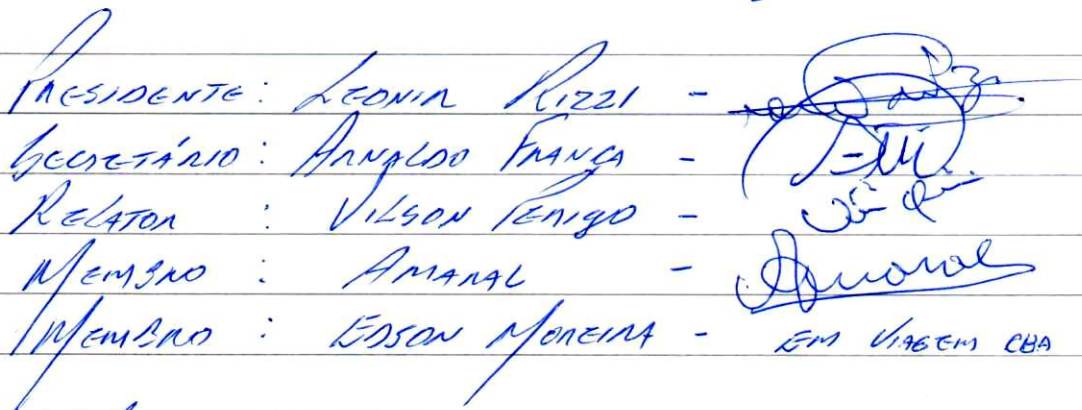 PRESIDENTE: LEONIR RIZZI -
SECRETÁRIO: ARNALDO FRANÇA -
RELATOR : VILSON PERIGO -
MEMBRO : AMARAL - Amaral
MEMBRO : EDSON MOREIRA - EM VIAGEM CBA